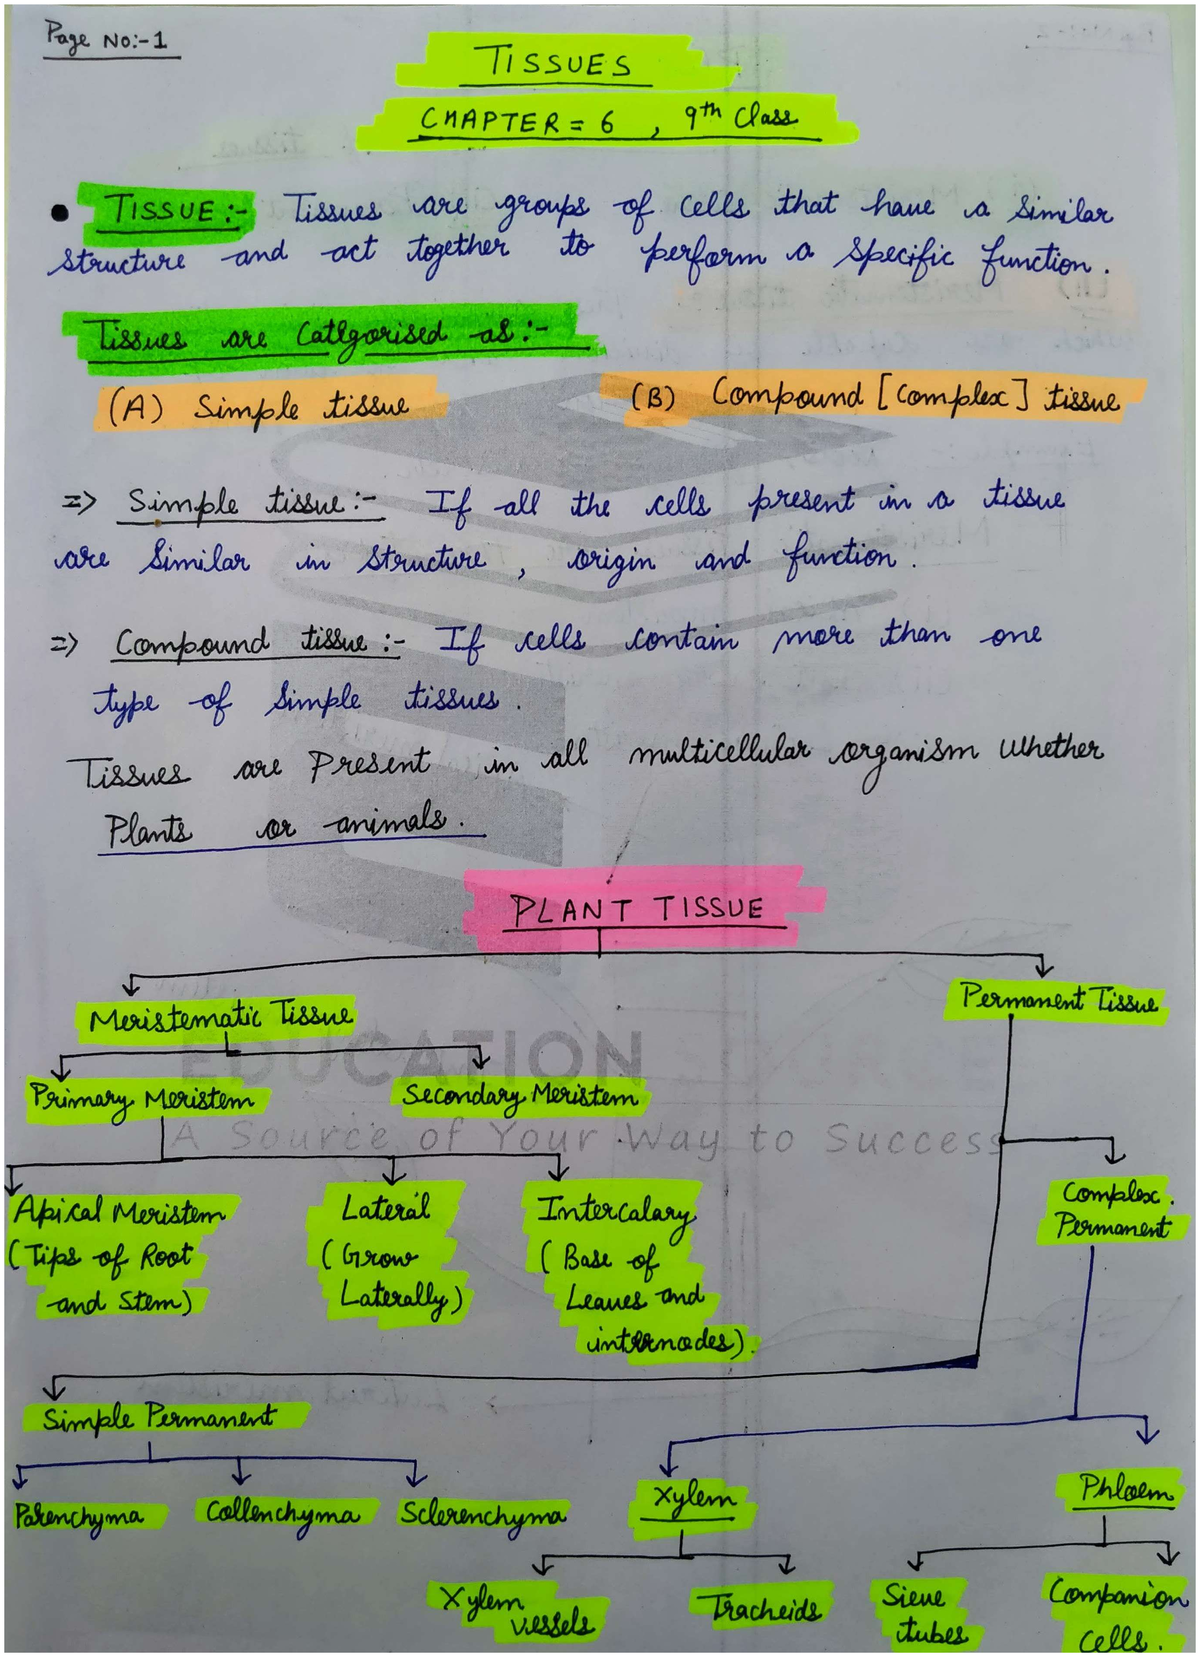 Page No:-1
TISSUES
CHAPTER = 6 , 9th Class
• TISSUE :- Tissues are groups of cells that have a similar
structure and act together to perform a specific function.
Tissues are Catlgorised as :-
(A) Simple tissue (B) Compound [Complex] tissue
=> Simple tissue :- If all the cells present in a tissue
are similar in structure , origin and function .
=> Compound tissue :- If cells contain more than one
type of simple tissues .
Tissues are Present in all multicellular organism whether
Plants or animals .
PLANT TISSUE
Meristematic Tissue Permanent Tissue
EDUCATION
Primary Meristem Secondary Meristem
A Source of Your Way to Success
Apical Meristem Lateral Intercalary Complex .
(Tips of Root (Grow (Base of Permanent
and Stem) Laterally) Leaves and
internodes).
Simple Permanent
Parenchyma Collenchyma Sclerenchyma Xylem Phloem
Xylem Tracheids Sieve Companion
vessels tubes cells .